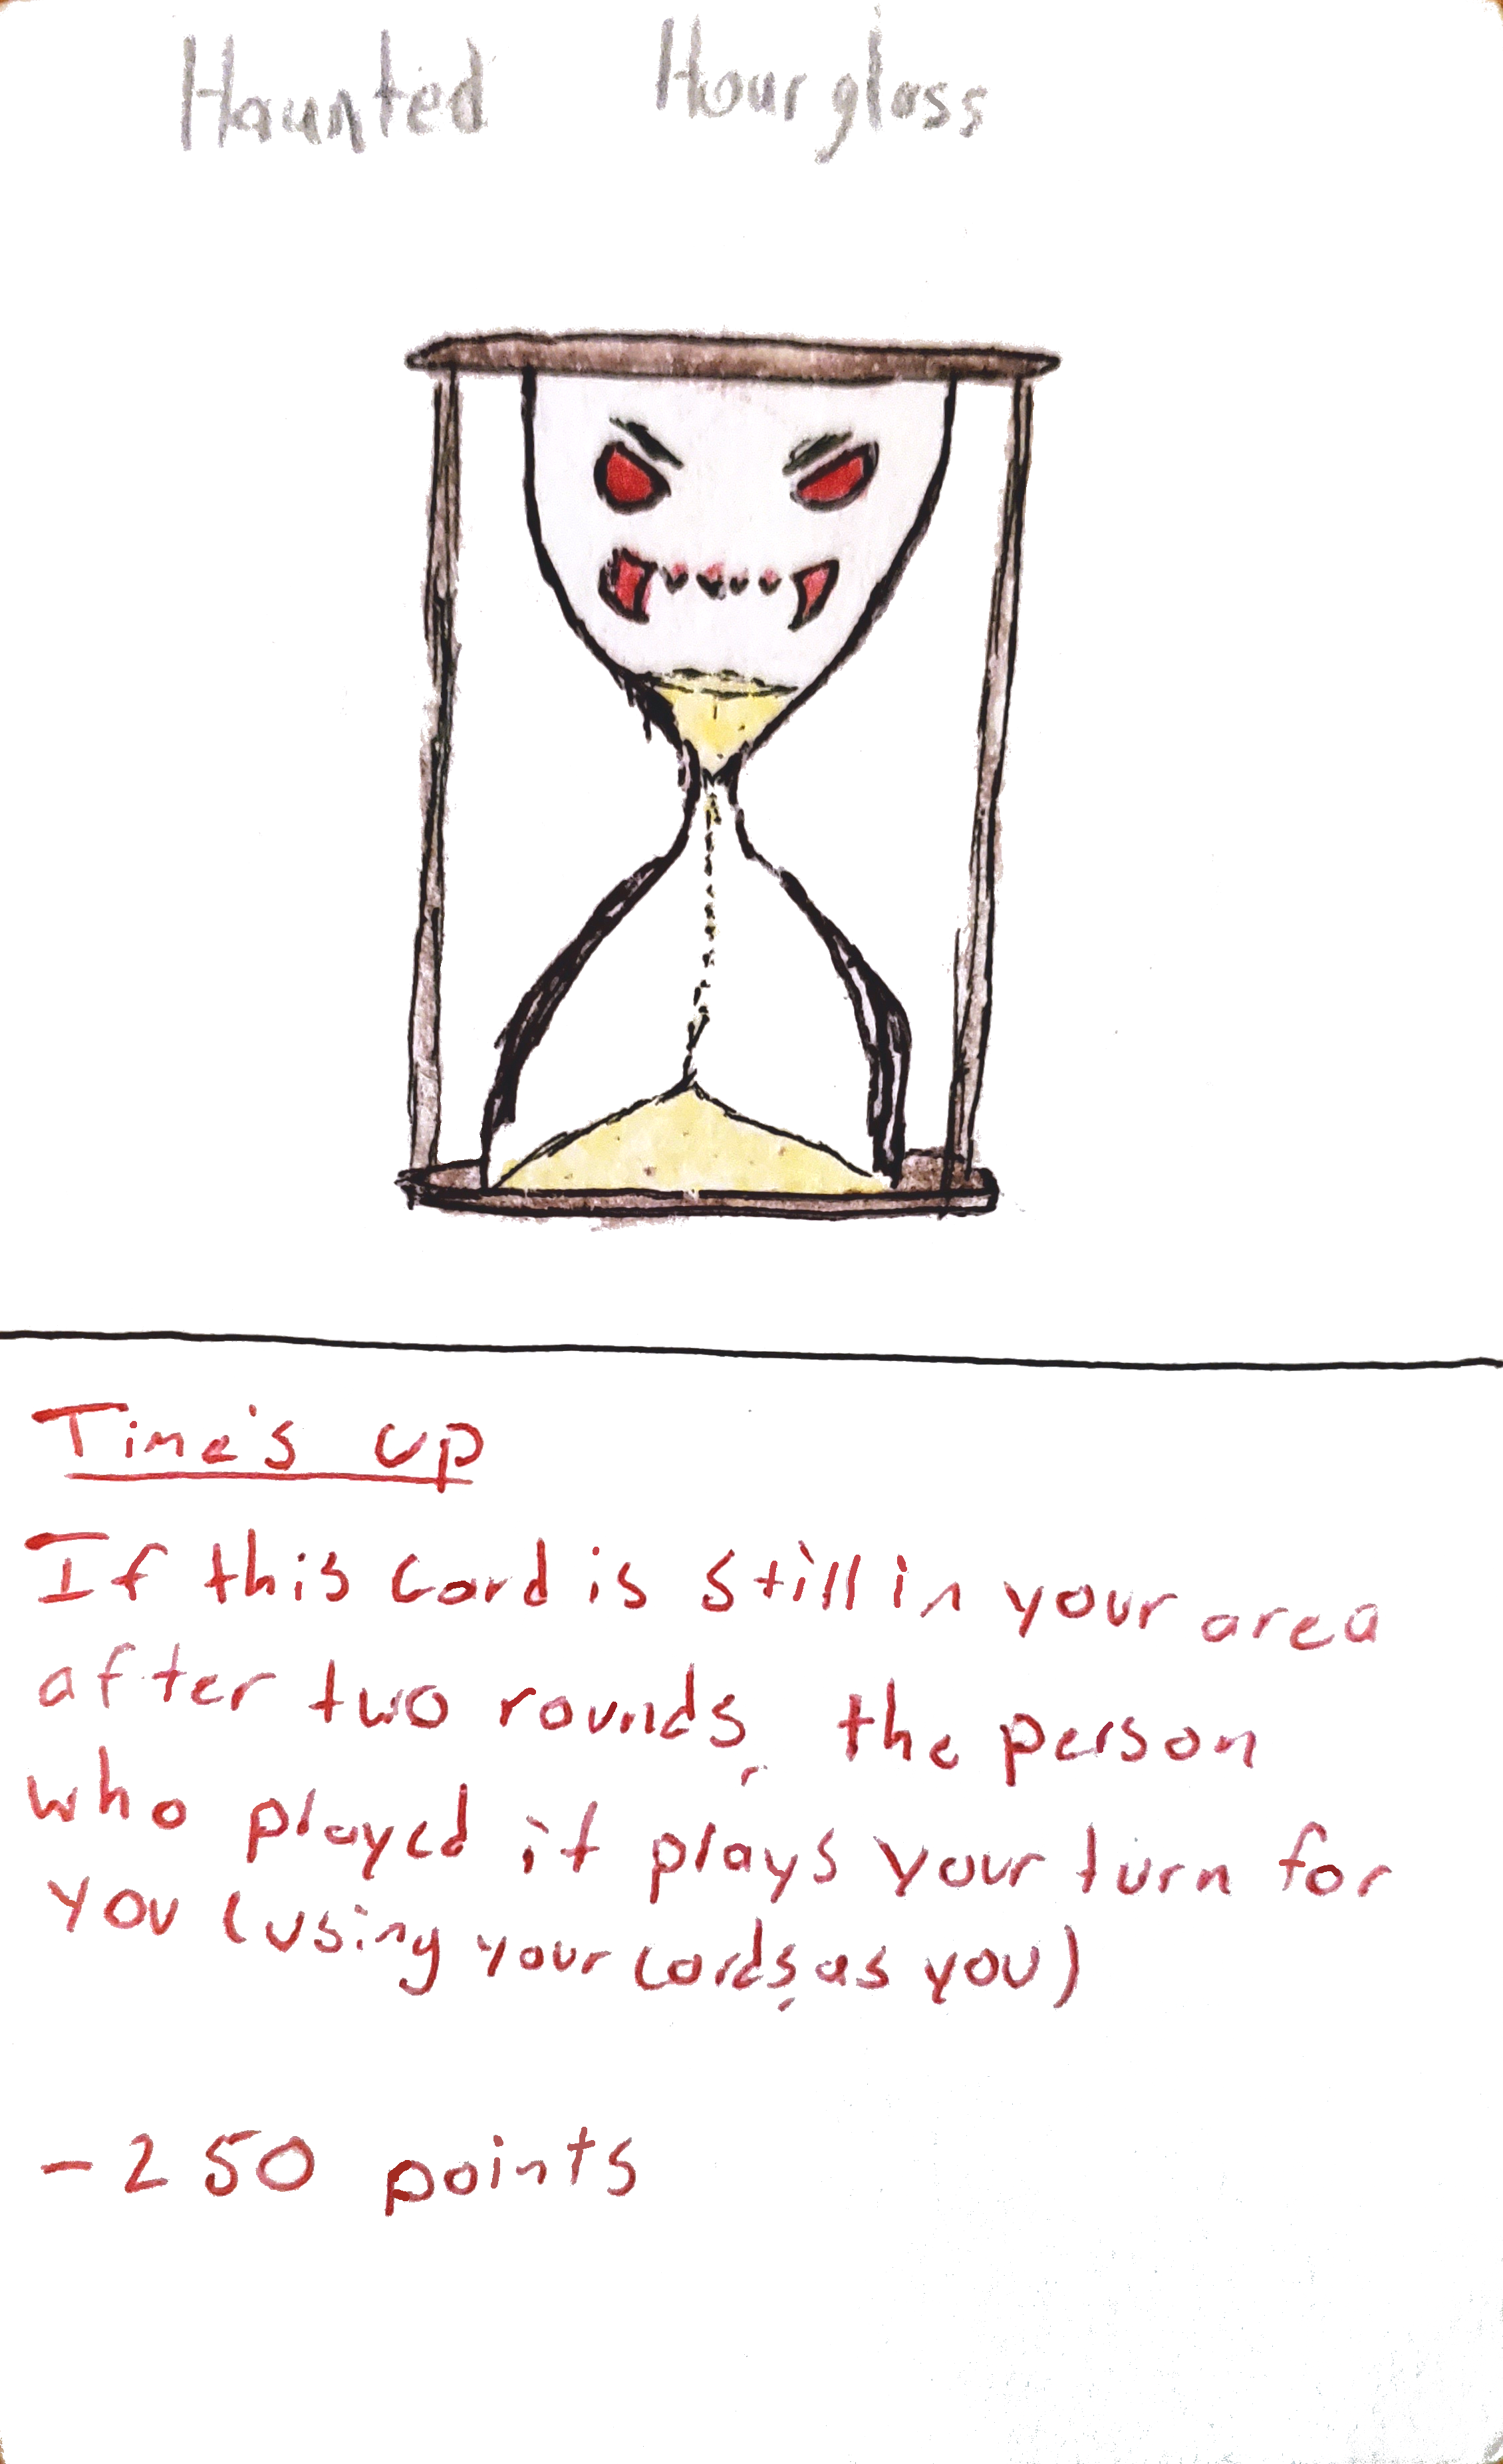 Haunted Hourglass
Time's up
If this card is still in your area
after two rounds, the person
who played it plays your turn for
you (using your cards, as you)
-250 points